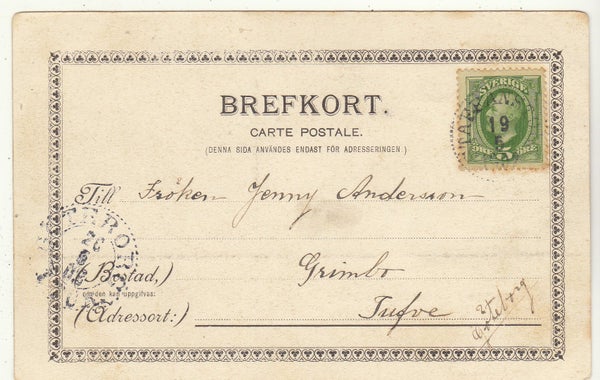 SVERIGE
19
5
5 ÖRE
BREFKORT.
CARTE POSTALE.
(DENNA SIDA ANVÄNDES ENDAST FÖR ADRESSERINGEN.)
Till Fröken Jenny Andersson
(Bostad,) Grimbo
om den kan uppgifvas:
(Adressort:) Tufve
Göteborg